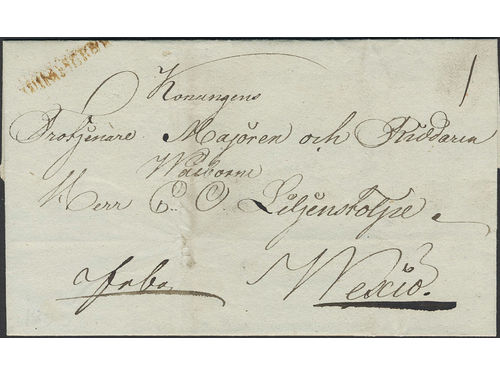 Konungens
Trotjenare Majoren och Riddaren
Wälborne
Herr C. O. Liljenstolpe
Wexiö.